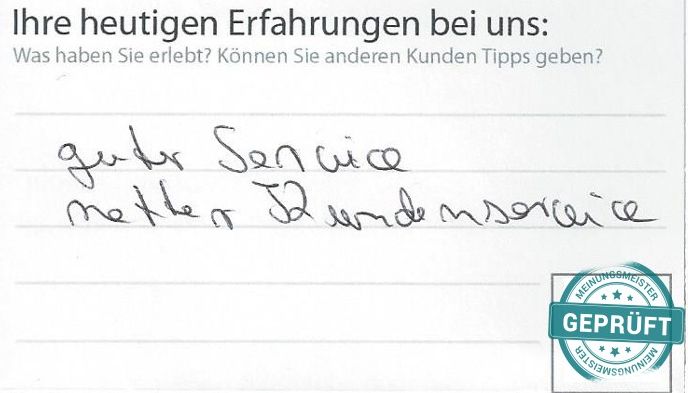 Ihre heutigen Erfahrungen bei uns:
Was haben Sie erlebt? Können Sie anderen Kunden Tipps geben?
guter Service
netter Kundenservice
MEINUNGSMEISTER
GEPRÜFT
MEINUNGSMEISTER